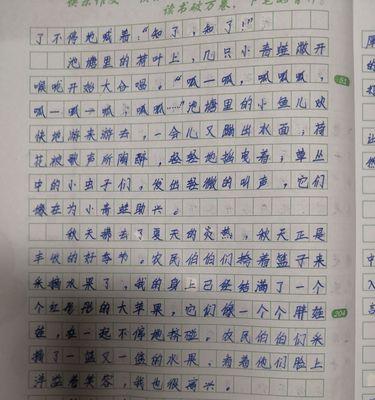 读书破万卷，下笔
了不得地喊着："知了，知了！"
池塘里的荷叶上，几只小青蛙敞开
喉咙开始大合唱。"呱一呱，呱呱呱，
呱一呱一呱，呱呱……"池塘里的小鱼儿欢
快地游来游去，一会儿又蹦出水面；荷
花被歌声所陶醉，轻轻地摇曳着；草丛
中的小虫子们，发出轻微的叫声，它们
像在为小青蛙助兴。
秋天挪去了夏天的炎热，秋天正是
丰收的好季节。农民伯伯们挎着篮子来
采摘水果了，我的身上已经结满了一个
个红彤彤的大苹果，它们像一个个胖娃
娃，在一起不停地挤碰。农民伯伯们采
摘了一篮又一篮的水果，看着他们脸上
洋溢着笑容，我也很高兴。
204